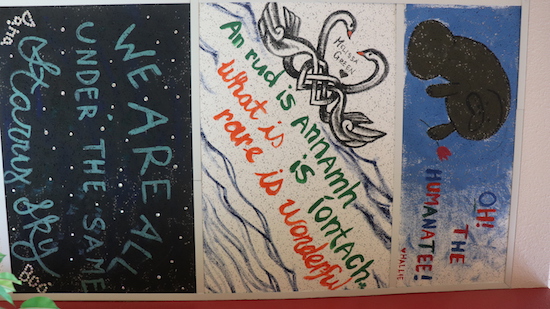 WE ARE ALL
UNDER THE SAME
Starry SKY
MELISSA
GREEN
An rud is ANNAMH
is Iontach.
what is
rare is wonderful.
OH!
THE
HUMANATEE!
HALLIE